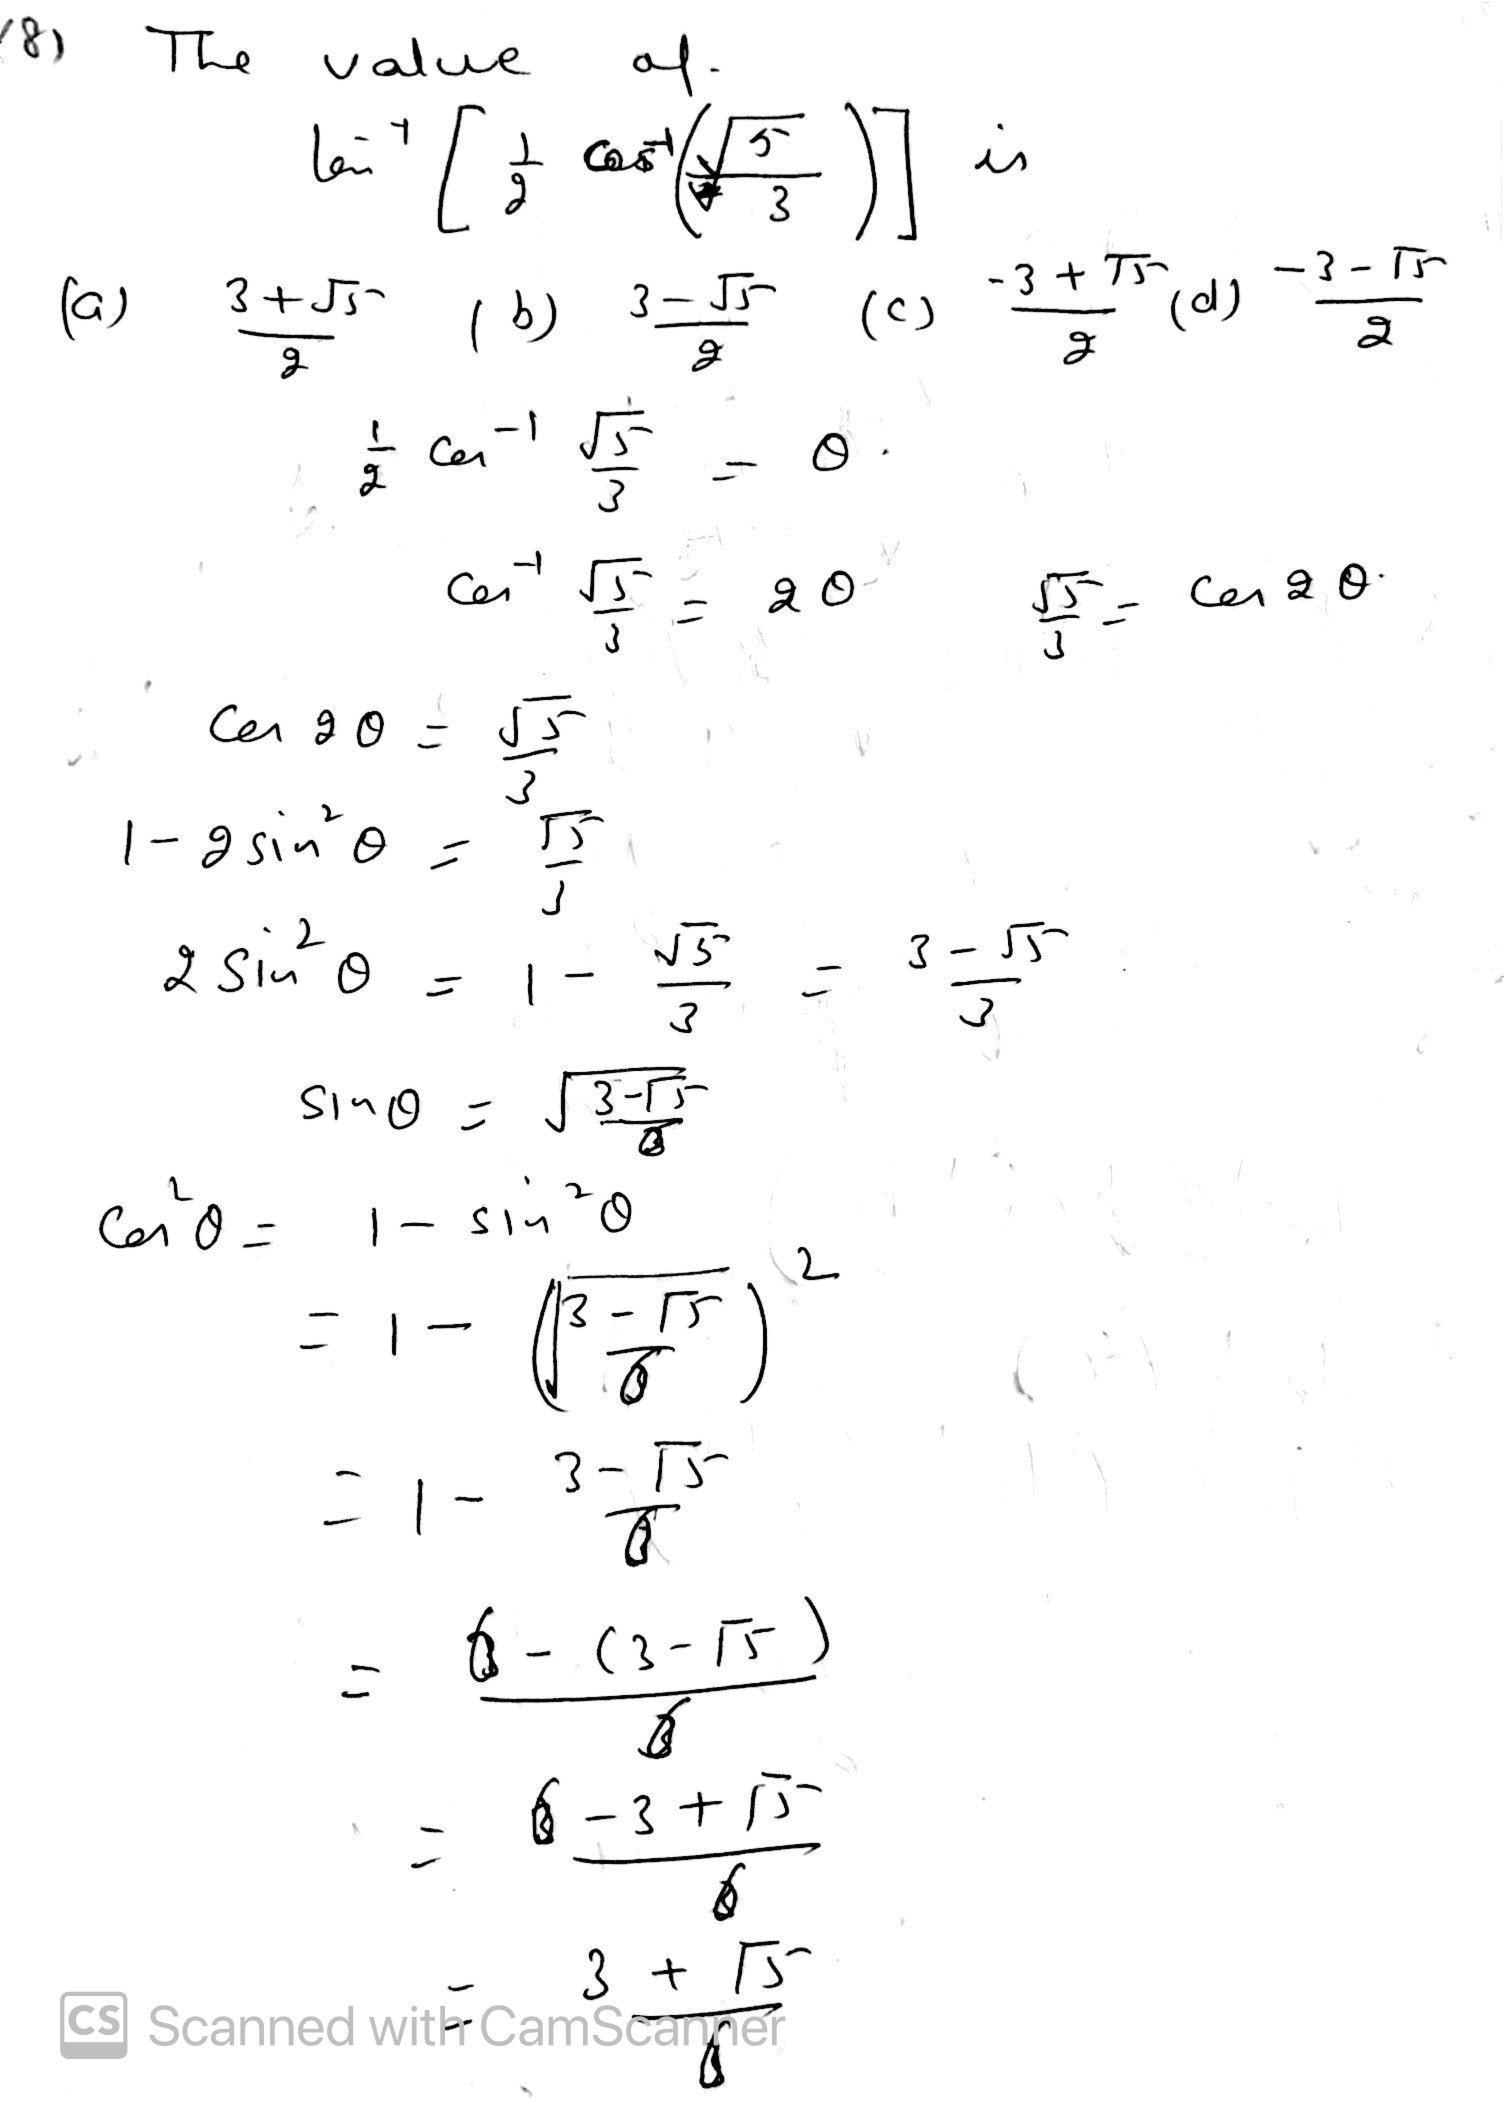 18) The value of.
tan⁻¹ [ 1/2 cos⁻¹ ( √5/3 ) ] is
(a) 3+√5/2 (b) 3-√5/2 (c) -3+√5/2 (d) -3-√5/2
1/2 cos⁻¹ √5/3 = θ.
cos⁻¹ √5/3 = 2θ √5/3 = cos 2θ.
cos 2θ = √5/3
1-2sin²θ = √5/3
2 sin²θ = 1 - √5/3 = 3-√5/3
sinθ = √(3-√5/6)
cos²θ = 1 - sin²θ
= 1 - (√(3-√5/6))²
= 1 - 3-√5/6
= 6-(3-√5)/6
= 6-3+√5/6
= 3+√5/6
CS Scanned with CamScanner